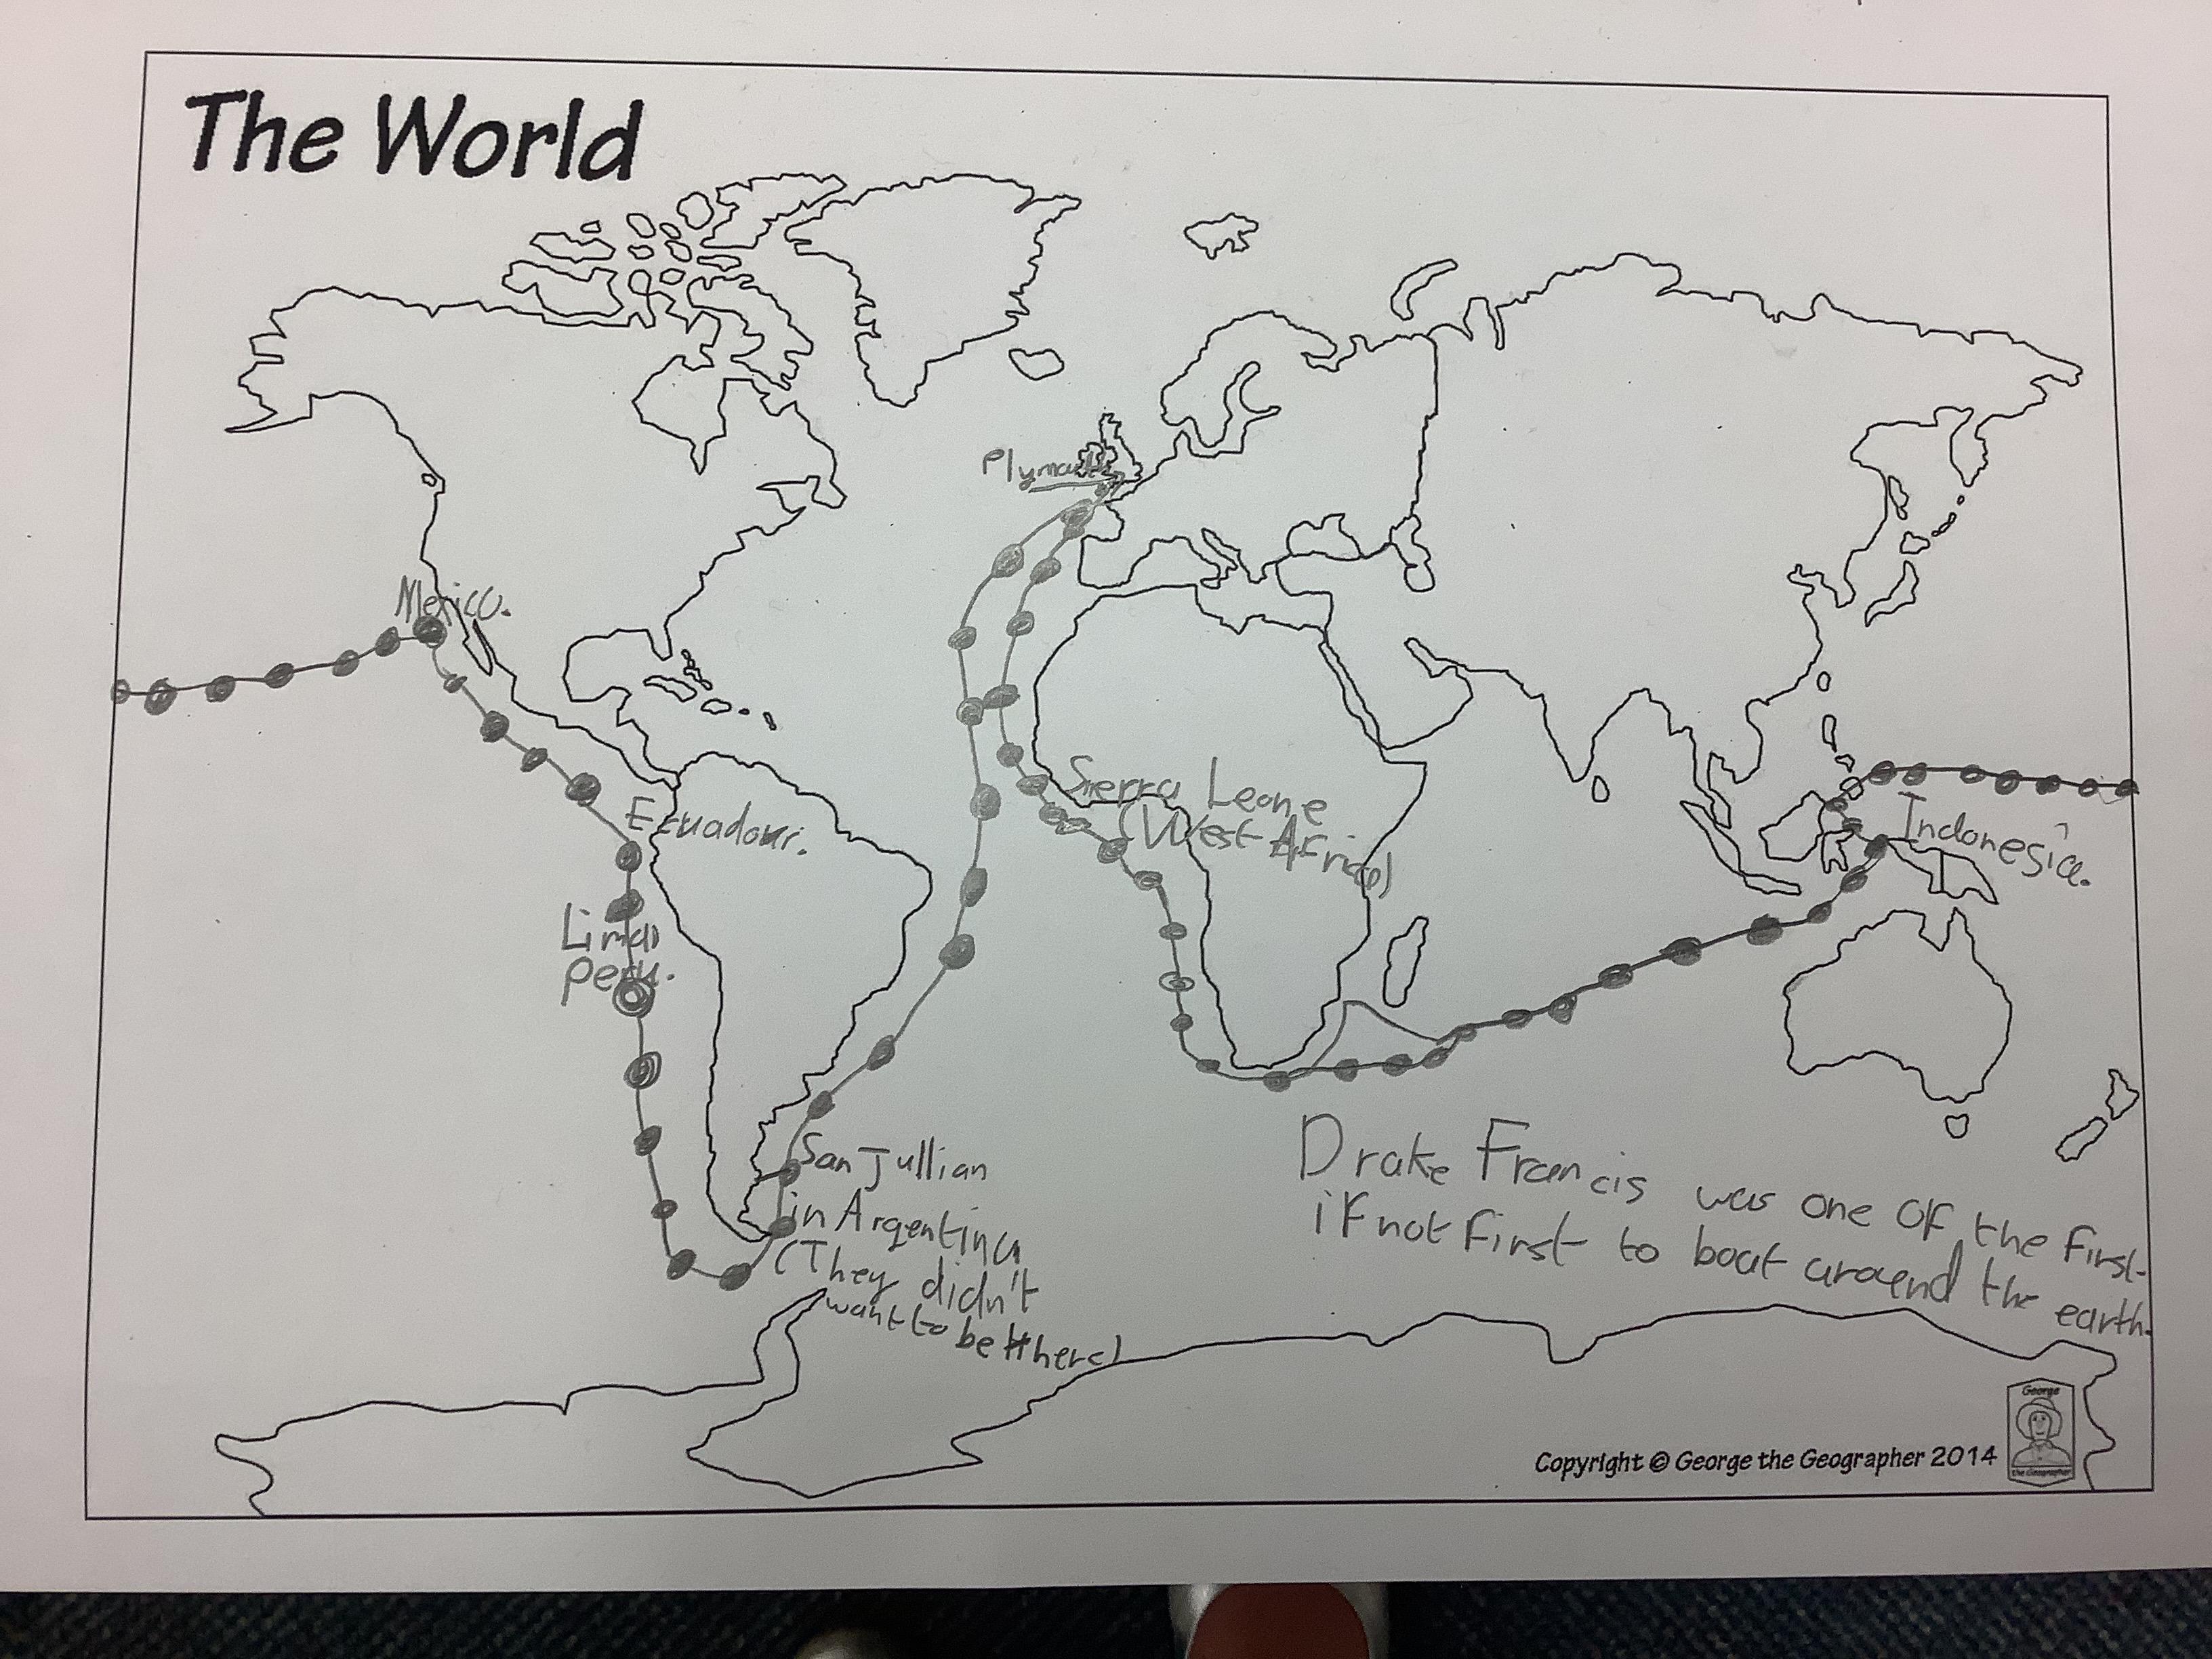 The World
Plymouth
Mexico.
Sierra Leone
(West Africa)
Ecuadour.
Indonesia.
Lima
Peru.
San Jullian
in Argentina
(They didn't
want to be there)
Drake Francis was one of the first
if not first to boat around the earth.
Copyright © George the Geographer 2014
George
the Geographer